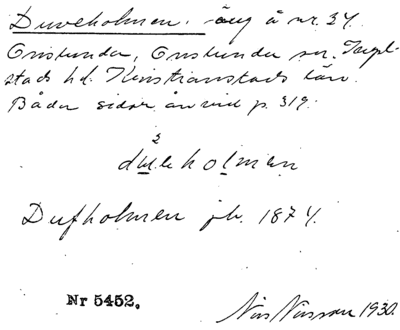 Duveholmen, äng å nr. 34
Onslunda, Onslunda sn. Ingel-
stads hd. Kristianstads län.
Båda sidor ån vid p. 319.
3
duveholmen
Dufholmen jb. 1874.
Nr 5452.
Nils Nilsson 1930.